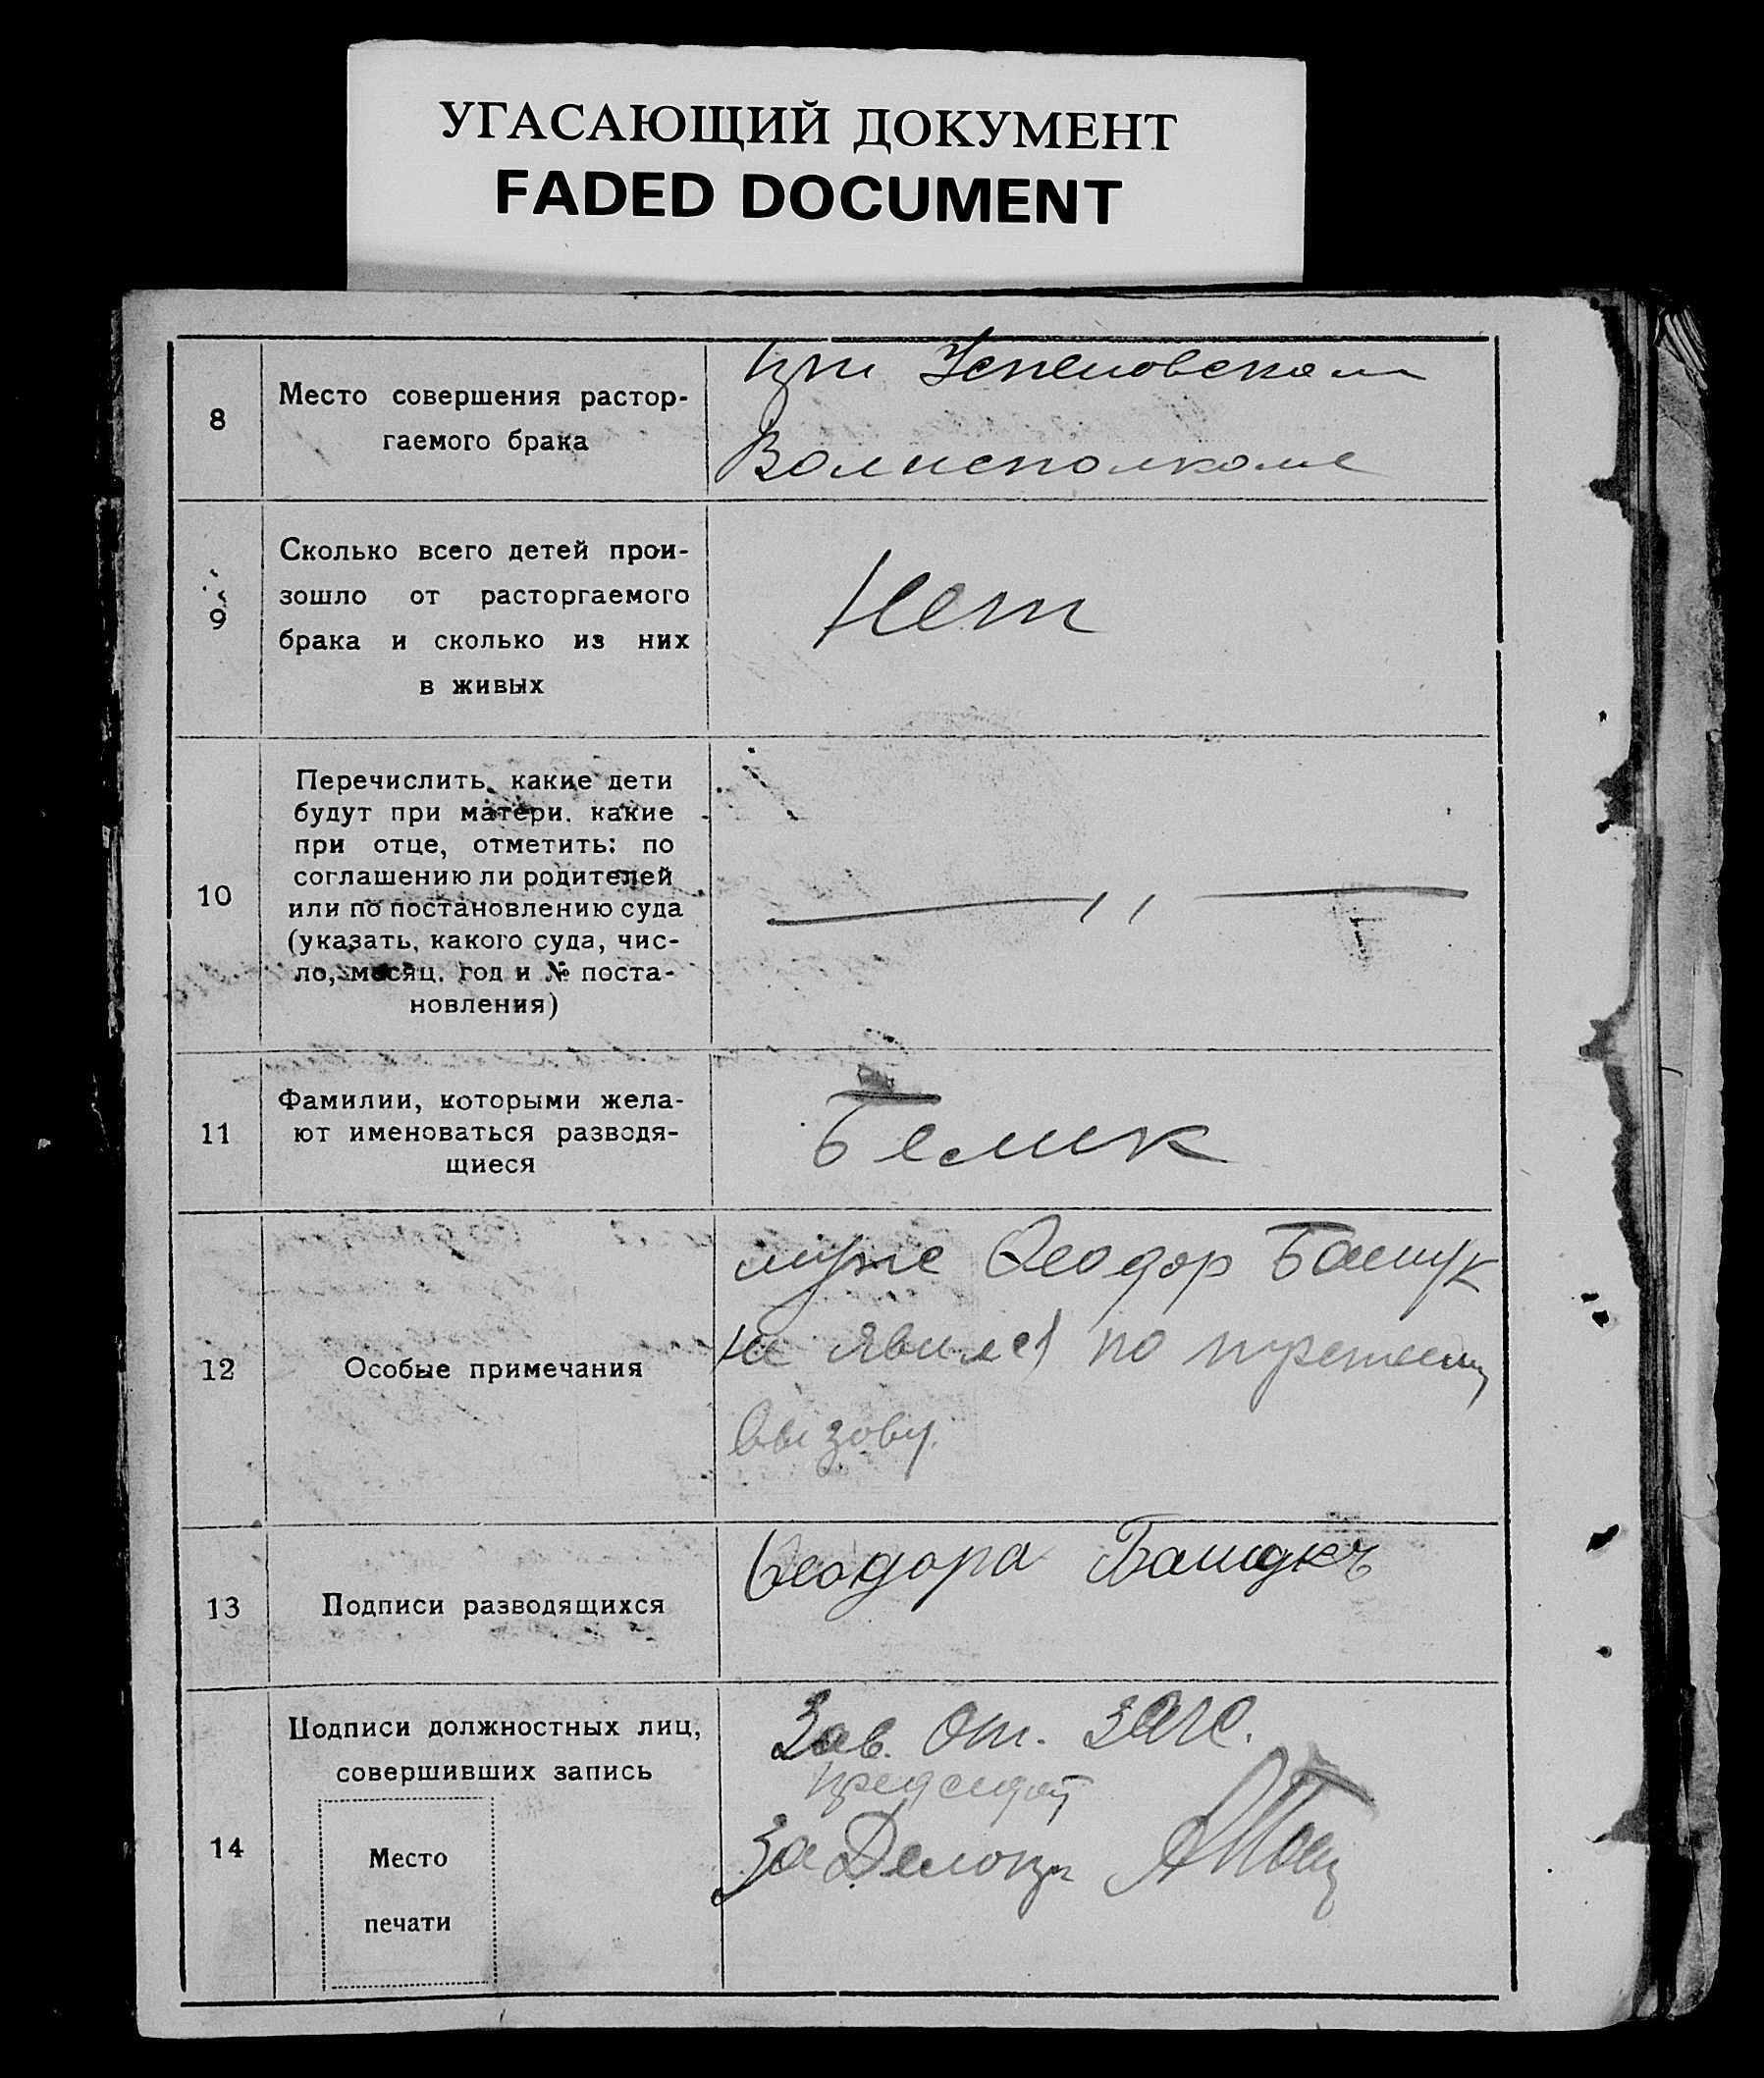 УГАСАЮЩИЙ ДОКУМЕНТ
FADED DOCUMENT
8
Место совершения растор-
гаемого брака
при Успеновском
Волисполкоме
9
Сколько всего детей прои-
зошло от расторгаемого
брака и сколько из них
в живых
Нет
10
Перечислить, какие дети
будут при матери, какие
при отце, отметить: по
соглашению ли родителей
или по постановлению суда
(указать, какого суда, чис-
ло, месяц, год и № поста-
новления)
— ,, —
11
Фамилии, которыми жела-
ют именоваться разводя-
щиеся
Белик
12
Особые примечания
муже Феодор Башук
не явился по
вызову.
13
Подписи разводящихся
Феодора Башукъ
14
Подписи должностных лиц,
совершивших запись
Место
печати
Зав. От. ЗАГС.
председат
За Делопр